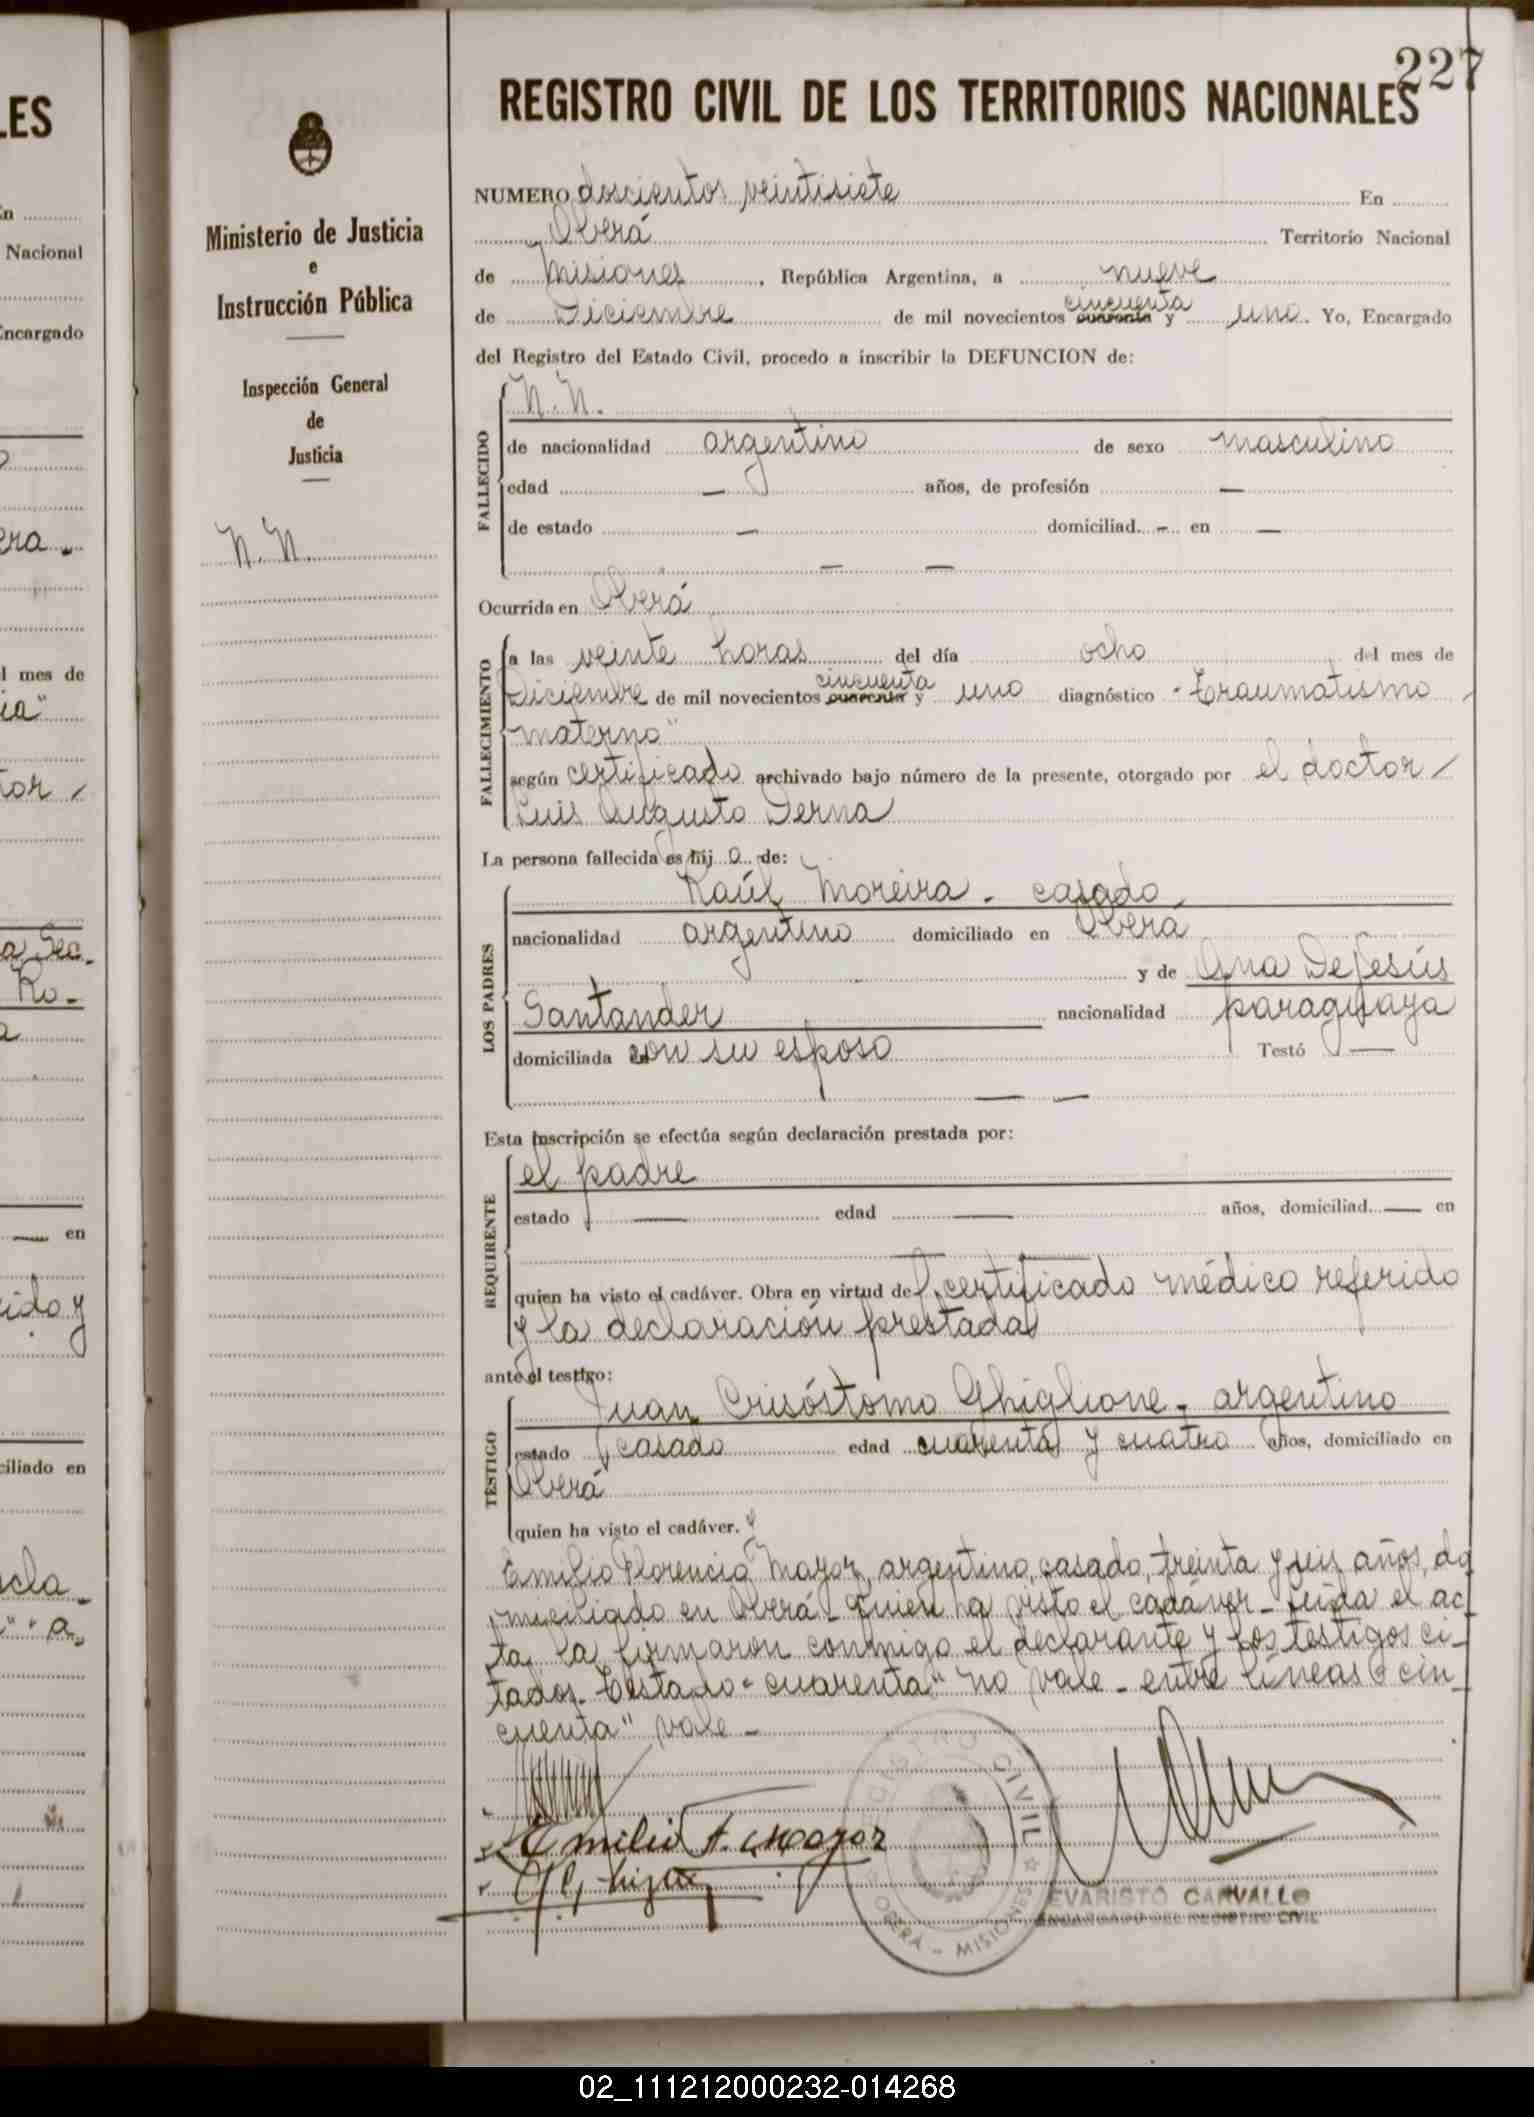 227
REGISTRO CIVIL DE LOS TERRITORIOS NACIONALES
Ministerio de Justicia
e
Instrucción Pública
Inspección General
de
Justicia
N. N.
NUMERO doscientos veintisiete En
Oberá Territorio Nacional
de Misiones, República Argentina, a nueve
cincuenta
de Diciembre de mil novecientos cuarenta y uno. Yo, Encargado
del Registro del Estado Civil, procedo a inscribir la DEFUNCION de:
FALLECIDO
N. N.
de nacionalidad argentino de sexo masculino
edad — años, de profesión —
de estado — domiciliad. — en —
— —
Ocurrida en Oberá
FALLECIMIENTO
a las veinte horas del día ocho del mes de
cincuenta
Diciembre de mil novecientos cuarenta y uno diagnóstico "Traumatismo
materno"
según certificado archivado bajo número de la presente, otorgado por el doctor
Luis Augusto Derna
La persona fallecida es hij o de:
LOS PADRES
Raúl Moreira - casado
nacionalidad argentino domiciliado en Oberá
y de Ana DeJesús
Santander nacionalidad paraguaya
domiciliada con su esposo Testó —
— —
Esta inscripción se efectúa según declaración prestada por:
REQUIRENTE
el padre
estado — edad — años, domiciliad. — en
quien ha visto el cadáver. Obra en virtud del certificado médico referido
y la declaración prestada
ante el testigo:
TESTIGO
Juan Crisóstomo Ghiglione - argentino
estado casado edad cuarenta y cuatro años, domiciliado en
Oberá
quien ha visto el cadáver. y
Emilio Florencio Mayor, argentino, casado, treinta y seis años, do
miciliado en Oberá - quien ha visto el cadáver - Leída el ac
ta la firmaron conmigo el declarante y los testigos ci-
tados. Testado "cuarenta" no vale - entre líneas "cin
cuenta" vale -
Emilio F. Mayor
REGISTRO CIVIL
OBERÁ - MISIONES
EVARISTO CARVALLO
ENCARGADO DEL REGISTRO CIVIL
02_111212000232-014268